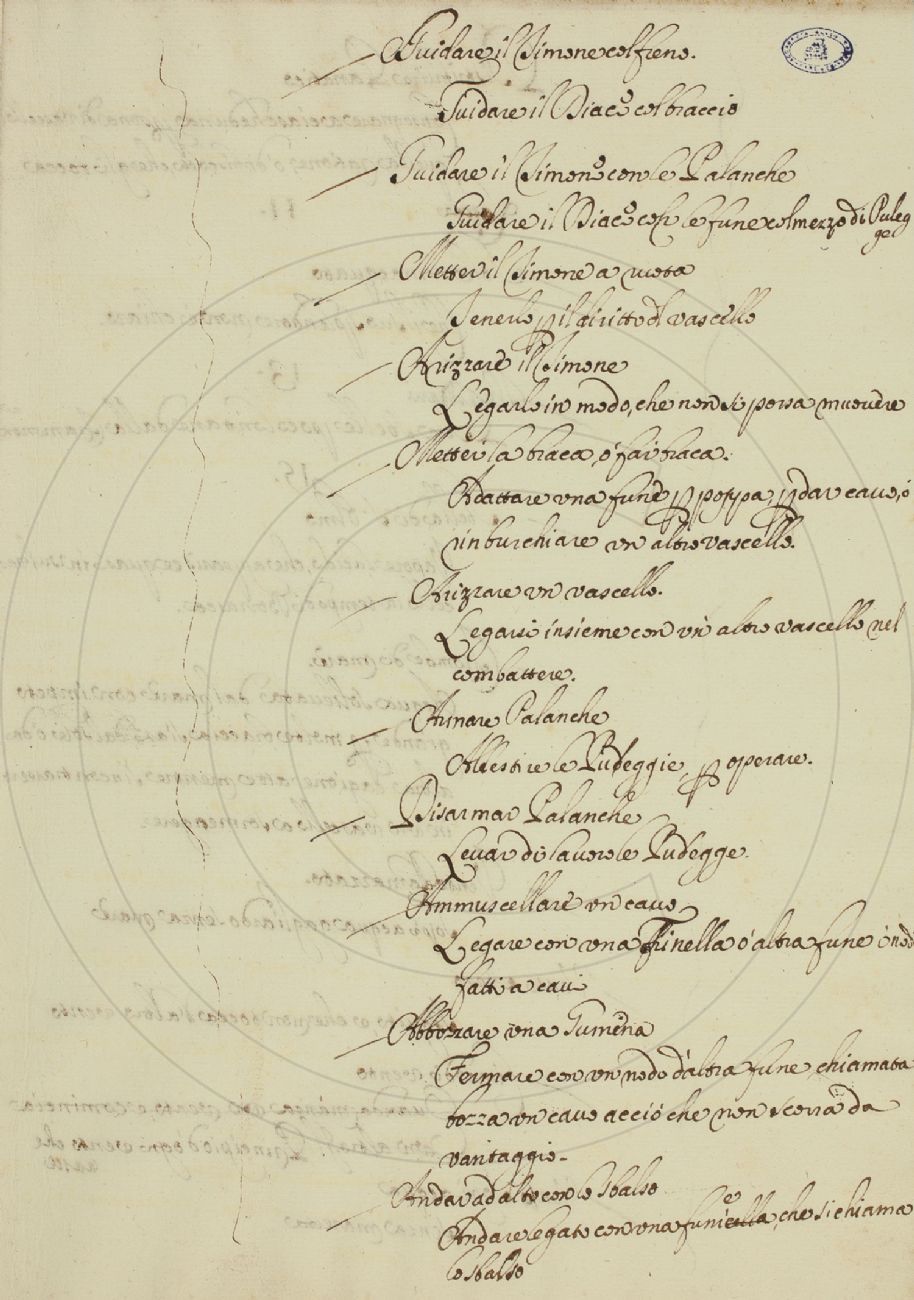 Guidare il Timone col freno.
Guidare il Diacº col braccio
Guidare il Timonº con le Palanche
Guidare il Diacº coll le fune col mezzo di Puleg
ge
Metter il Timone a ruota
Tenerlo p il diritto dl vascello
Arizzare il Timone
Legarlo in modo, che non si possa muovere
Metter la braca, ó far braca.
Adattare una fune p poppa p dar cavo, ó
rinburchiare un altro vascello.
Arizzare un vascello.
Legarsi insieme con un altro vascello nel
combattere.
Armare Palanche
Allestire le Puleggie, p operare.
Disarmar Palanche
Levar di lavoro le Pulegge.
Ammuscellare un cavo
Legare con una Trinella ó altra fune i nodi
fatti a cavi
Abbozzare una Gumena
Fermare con un nodo d'altra fune chiamata
bozza un cavo acció che non scorra da
vantaggio.
Andar ad alto con lo sbalso
Andare legato con una fune, che si chiama
lo sbalso